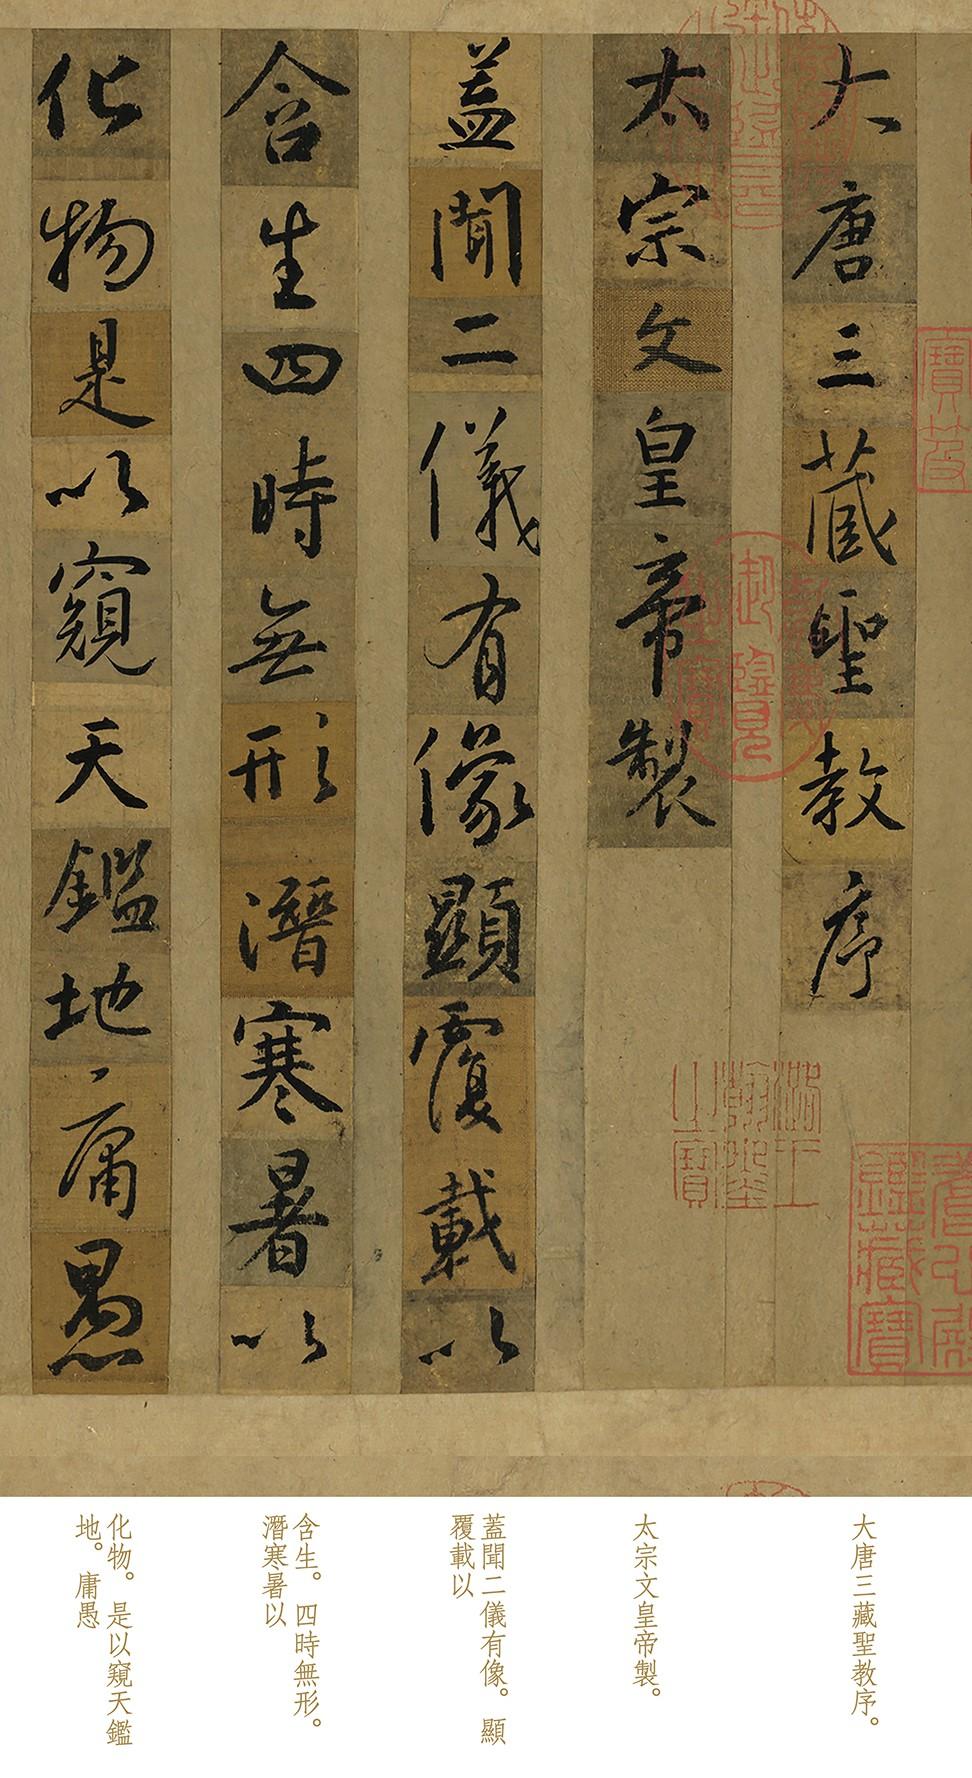 大唐三藏聖教序
太宗文皇帝製
蓋聞二儀有像顯覆載以
含生四時無形潛寒暑以
化物是以窺天鑑地庸愚
大唐三藏聖教序。
太宗文皇帝製。
蓋聞二儀有像。顯
覆載以
含生。四時無形。
潛寒暑以
化物。是以窺天鑑
地。庸愚